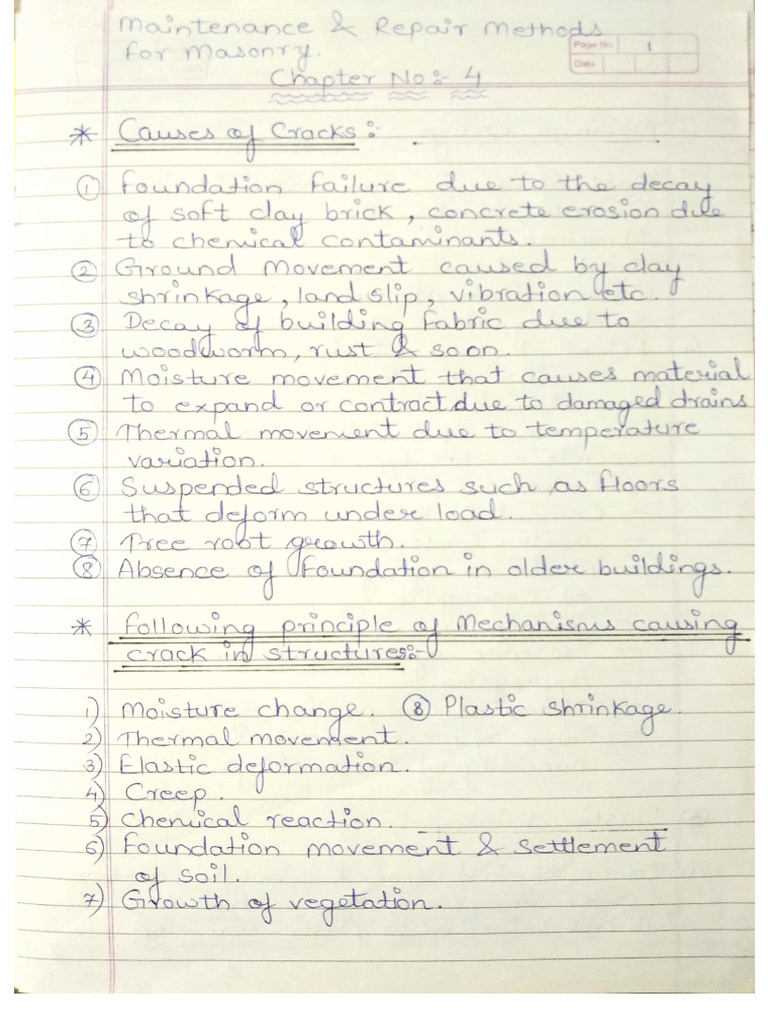 Maintenance & Repair Methods
for Masonry.
Page No. 1
Date
Chapter No:- 4
* Causes of Cracks:-
① Foundation failure due to the decay
of soft clay brick, concrete erosion due
to chemical contaminants.
② Ground movement caused by clay
shrinkage, land slip, vibration etc.
③ Decay of building fabric due to
woodworm, rust & soon.
④ Moisture movement that causes material
to expand or contract due to damaged drains
⑤ Thermal movement due to temperature
variation.
⑥ Suspended structures such as floors
that deform under load.
⑦ Tree root growth.
⑧ Absence of foundation in older buildings.
* Following principle of Mechanisms causing
crack in structures:-
1) Moisture change. ⑧ Plastic shrinkage.
2) Thermal movement.
3) Elastic deformation.
4) Creep.
5) Chemical reaction.
6) Foundation movement & settlement
of soil.
7) Growth of vegetation.